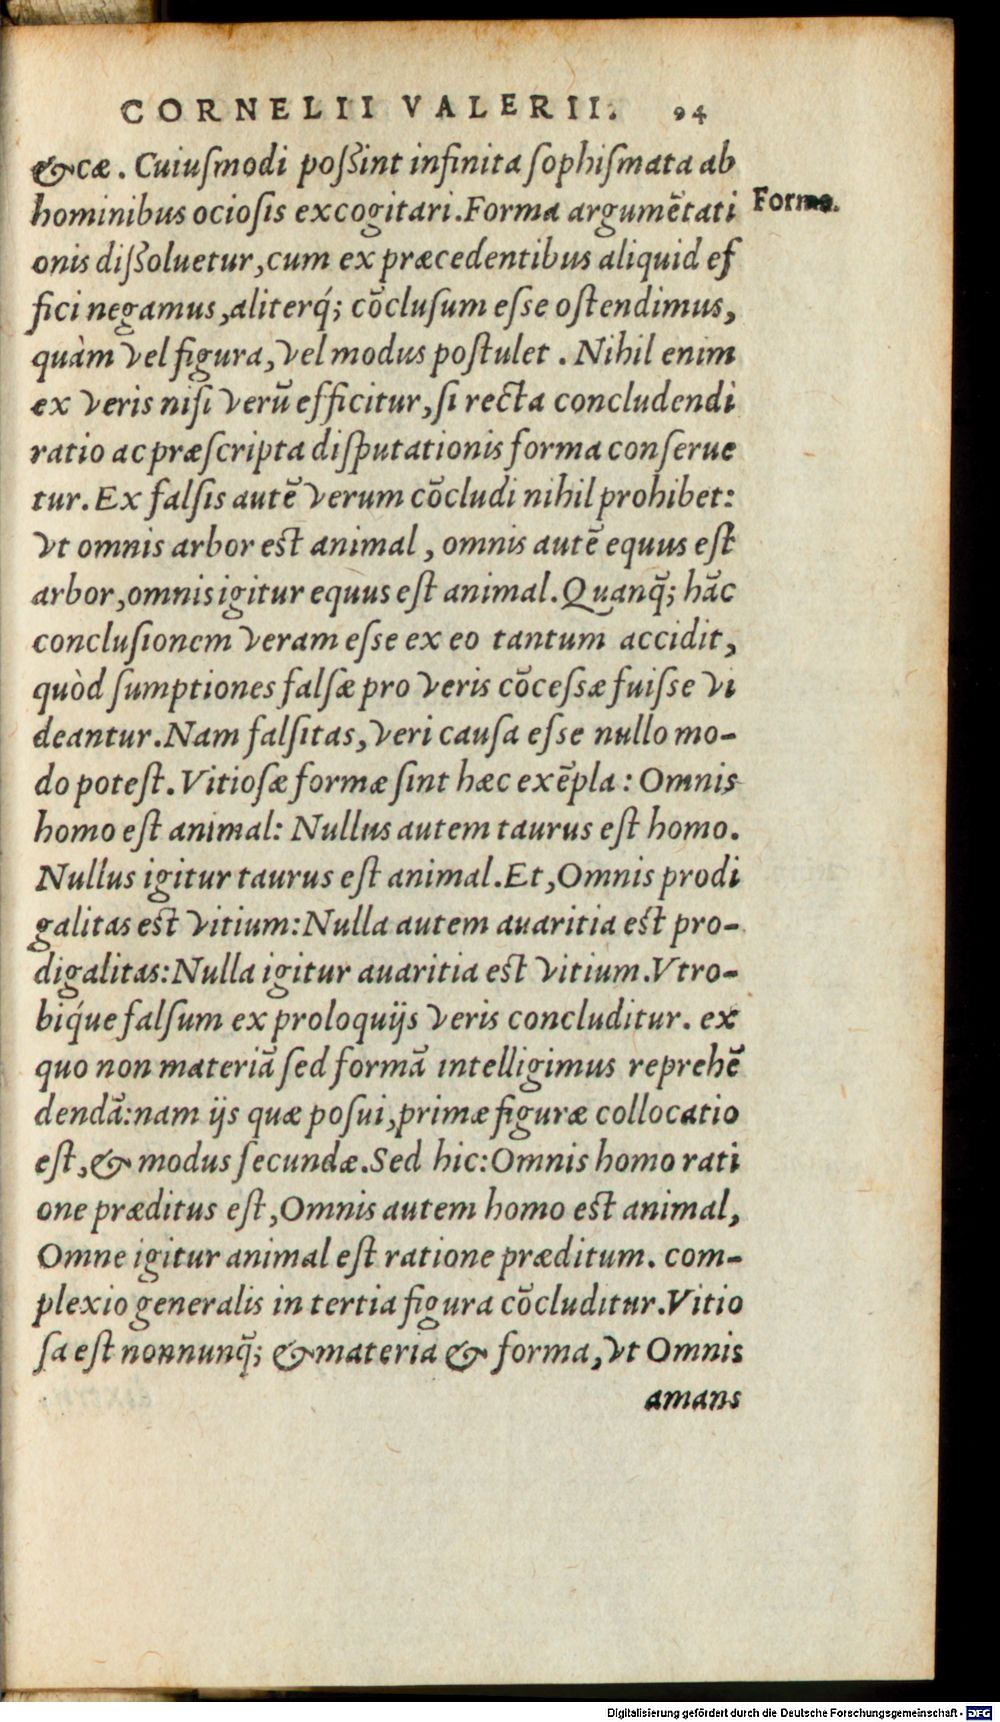 CORNELII VALERII. 94
&cæ. Cuiuſmodi poßint infinita ſophiſmata ab
hominibus ocioſis excogitari. Forma argumētati
Forma.
onis dißoluetur, cum ex præcedentibus aliquid ef
fici negamus, aliterq́; cōcluſum eſse oſtendimus,
quàm vel figura, vel modus poſtulet. Nihil enim
ex veris niſi verū efficitur, ſi recta concludendi
ratio ac præſcripta diſputationis forma conſerue
tur. Ex falſis autē verum cōcludi nihil prohibet:
vt omnis arbor est animal, omnis autē equus eſt
arbor, omnis igitur equus eſt animal. Quanq̃; hāc
concluſionem veram eſse ex eo tantum accidit,
quòd ſumptiones falſæ pro veris cōceſsæ fuiſse vi
deantur. Nam falſitas, veri cauſa eſse nullo mo-
do poteſt. Vitioſæ formæ ſint hæc exēpla: Omnis
homo eſt animal: Nullus autem taurus eſt homo.
Nullus igitur taurus eſt animal. Et, Omnis prodi
galitas est vitium: Nulla autem auaritia est pro-
digalitas: Nulla igitur auaritia est vitium. Vtro-
biq́ue falſum ex proloquijs veris concluditur. ex
quo non materiā ſed formā intelligimus reprehē
dendā: nam ijs quæ poſui, primæ figuræ collocatio
eſt, & modus ſecundæ. Sed hic: Omnis homo rati
one præditus eſt, Omnis autem homo est animal,
Omne igitur animal eſt ratione præditum. com-
plexio generalis in tertia figura cōcluditur. Vitio
ſa eſt nonnunq̃; & materia & forma, vt Omnis
amans
Digitalisierung gefördert durch die Deutsche Forschungsgemeinschaft - DFG